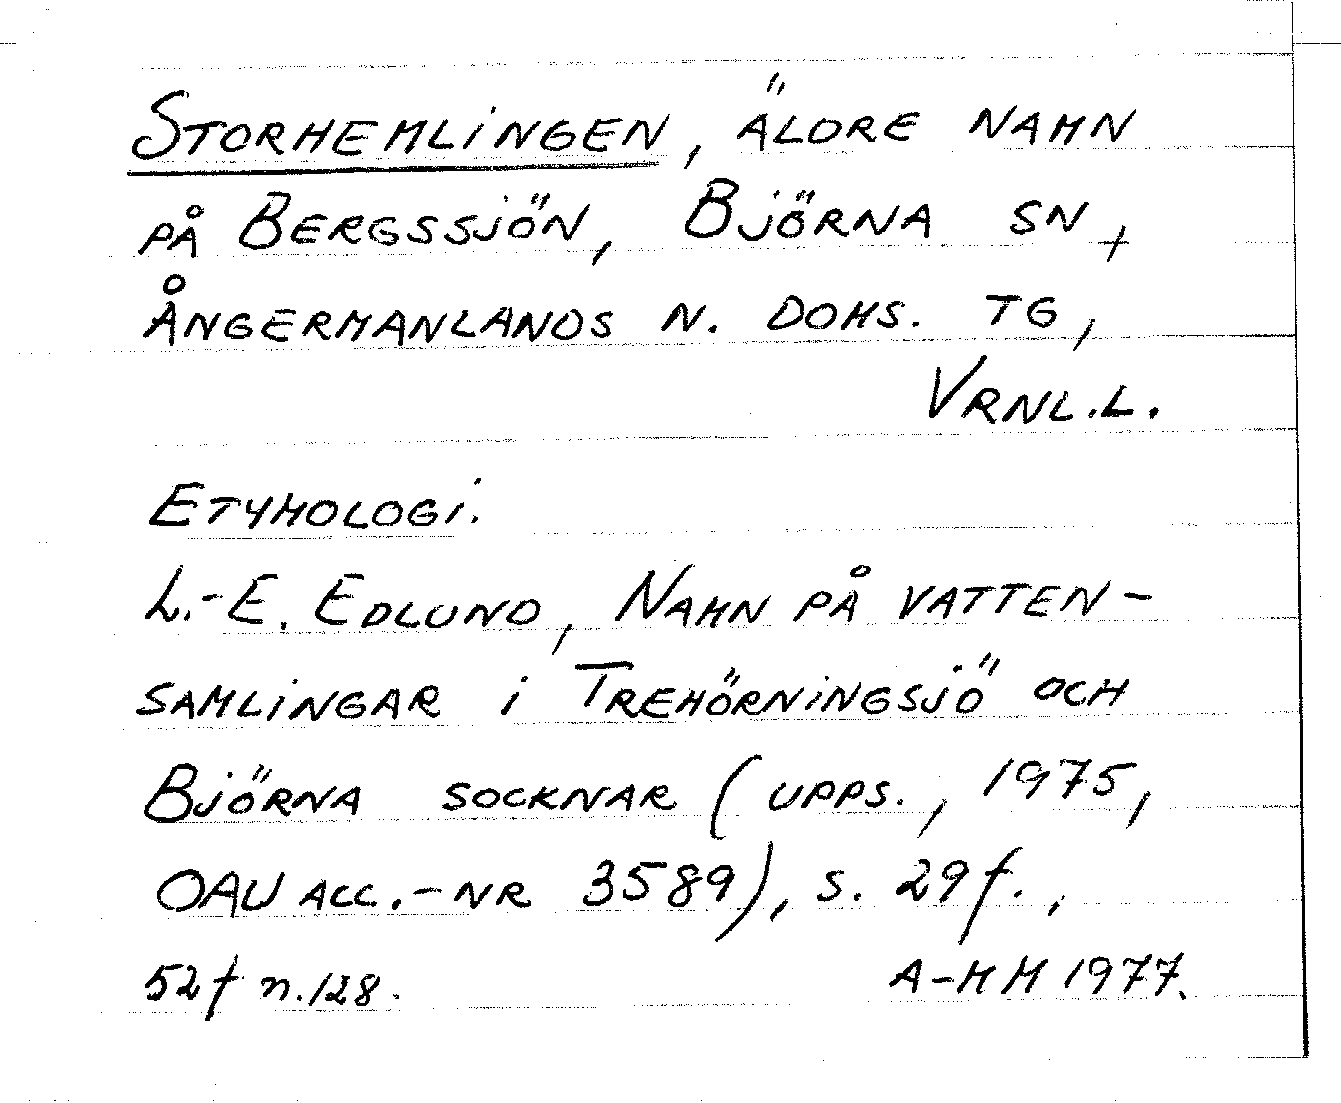 STORHEMLINGEN, ÄLDRE NAMN
PÅ BERGSSJÖN, BJÖRNA SN,
ÅNGERMANLANDS N. DOMS. TG,
VRNL.L.
ETYMOLOGI.
L.-E. EDLUND, NAMN PÅ VATTEN-
SAMLINGAR I TREHÖRNINGSJÖ OCH
BJÖRNA SOCKNAR (UPPS., 1975,
OAU ACC.-NR 3589), S. 29f.,
52f n.128.
A-MM 1977.